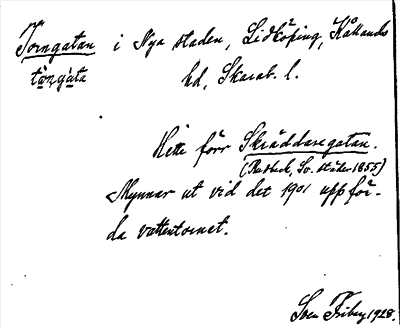 Torngatan i Nya staden, Lidköping, Kållands
tò̱ŋgà̱ta hd, Skarab. l.
Hette förr Skräddaregatan.
(Rudbeck, Sv. städer 1855)
Mynnar ut vid det 1901 uppför-
da vattentornet.
Sven Friberg 1928.